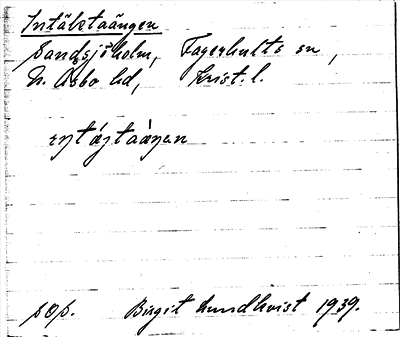 Intäktaängen
Sandsjöholm, Fagerhults sn,
N. Åsbo hd, Krist. l.
sop. Birgit Lundkvist 1939.